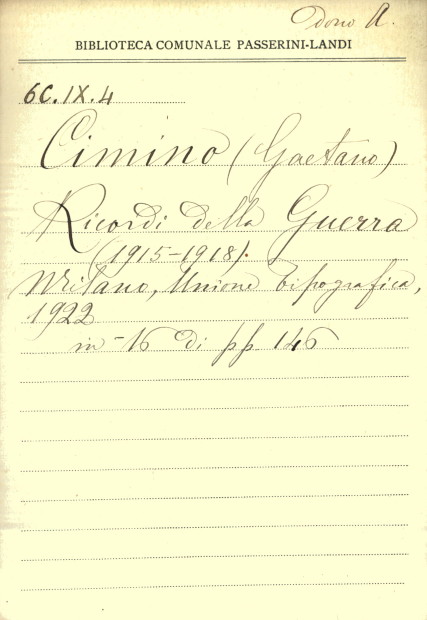 dono A.
BIBLIOTECA COMUNALE PASSERINI-LANDI
6C.IX.4
Cimino (Gaetano)
Ricordi della Guerra
(1915-1918).
Milano, Unione tipografica,
1922
in-16 di pp 146